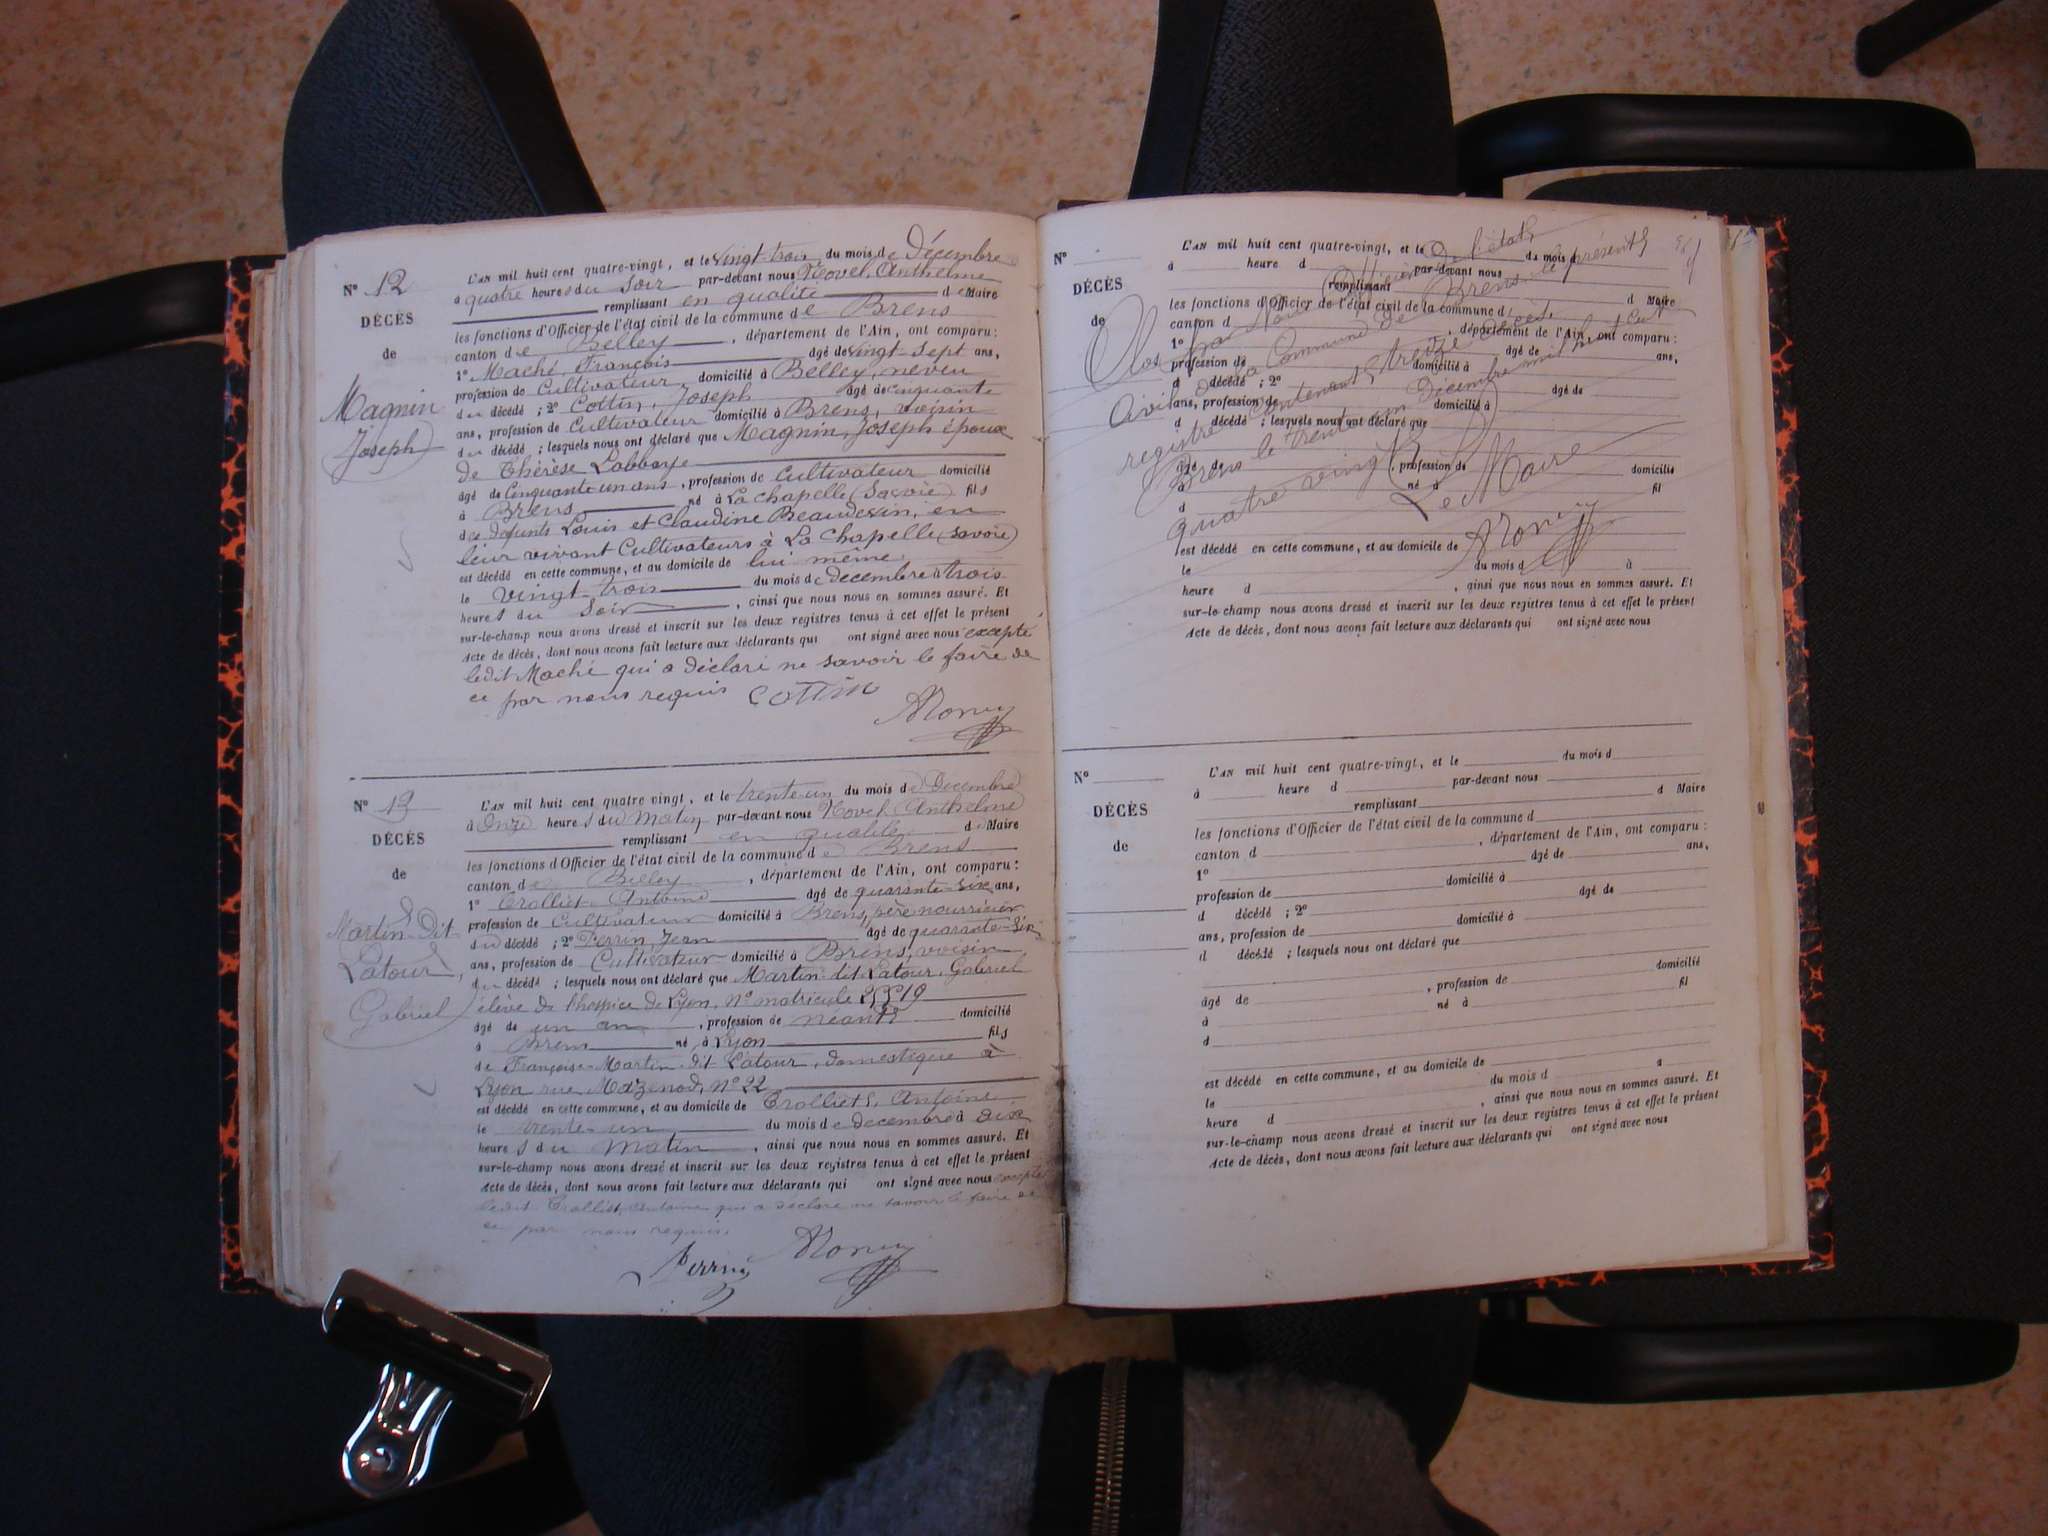 N° 12
DÉCÈS
de
Magnin
Joseph
L'AN mil huit cent quatre-vingt, et le vingt-trois du mois de Décembre
à quatre heures du soir par-devant nous Anthelme
remplissant en qualité de Maire
les fonctions d'Officier de l'état civil de la commune de Brens
canton de Belley, département de l'Ain, ont comparu:
1° Maché, François âgé de vingt-sept ans,
profession de Cultivateur domicilié à Belley, neveu
du décédé; 2° Cottin, Joseph âgé de cinquante
ans, profession de Cultivateur domicilié à Brens, voisin
du décédé; lesquels nous ont déclaré que Magnin, Joseph époux
de Thérèse Labbaye
âgé de Cinquante un ans, profession de Cultivateur domicilié
à Brens né à La Chapelle (Savoie) fils
de défunts Louis et Claudine en
leur vivant Cultivateurs à La Chapelle (Savoie)
est décédé en cette commune, et au domicile de lui même
le vingt-trois du mois de décembre à trois
heures du Soir, ainsi que nous nous en sommes assuré. Et
sur-le-champ nous avons dressé et inscrit sur les deux registres tenus à cet effet le présent
Acte de décès, dont nous avons fait lecture aux déclarants qui ont signé avec nous excepté
ledit Maché qui a déclaré ne savoir le faire de
ce par nous requis Cottin
N° 13
DÉCÈS
de
Martin-dit
Latour,
Gabriel
L'AN mil huit cent quatre vingt, et le trente-un du mois de Décembre
à Onze heures du Matin par-devant nous Anthelme
remplissant en qualité de Maire
les fonctions d'Officier de l'état civil de la commune de Brens
canton de Belley, département de l'Ain, ont comparu:
1° Trolliet Antoine âgé de quarante-six ans,
profession de Cultivateur domicilié à Brens, père nourricier
du décédé; 2° Perrin, Jean âgé de quarante-six
ans, profession de Cultivateur domicilié à Brens, voisin
du décédé; lesquels nous ont déclaré que Martin-dit Latour, Gabriel
élève de l'hospice de Lyon, N° matricule
âgé de un an, profession de néant domicilié
à Brens né à Lyon fils
de Françoise Martin-dit Latour, domestique à
Lyon rue Mazenod, N° 22
est décédé en cette commune, et au domicile de Trolliet, Antoine
le trente-un du mois de décembre à dix
heures du Matin, ainsi que nous nous en sommes assuré. Et
sur-le-champ nous avons dressé et inscrit sur les deux registres tenus à cet effet le présent
Acte de décès, dont nous avons fait lecture aux déclarants qui ont signé avec nous excepté
ledit Trolliet, Antoine qui a déclaré ne savoir le faire de
ce par nous requis.
Perrin
N°
DÉCÈS
de
L'AN mil huit cent quatre-vingt, et le du mois d
à heure d par-devant nous
remplissant d Maire
les fonctions d'Officier de l'état civil de la commune d
canton d, département de l'Ain, ont comparu:
1° âgé de ans,
profession de domicilié à
d décédé; 2° âgé de
ans, profession de domicilié à
d décédé; lesquels nous ont déclaré que
âgé de, profession de domicilié
à né à fil
d
est décédé en cette commune, et au domicile de
le du mois d à
heure d, ainsi que nous nous en sommes assuré. Et
sur-le-champ nous avons dressé et inscrit sur les deux registres tenus à cet effet le présent
Acte de décès, dont nous avons fait lecture aux déclarants qui ont signé avec nous
Clos par Nous Officier de l'état
Civil de la Commune de Brens le présent
registre contenant treize décès.
Brens le trente un Décembre mil huit Cent
quatre vingt
Le Maire
N°
DÉCÈS
de
L'AN mil huit cent quatre-vingt, et le du mois d
à heure d par-devant nous
remplissant d Maire
les fonctions d'Officier de l'état civil de la commune d
canton d, département de l'Ain, ont comparu:
1° âgé de ans,
profession de domicilié à
d décédé; 2° âgé de
ans, profession de domicilié à
d décédé; lesquels nous ont déclaré que
âgé de, profession de domicilié
à né à fil
d
est décédé en cette commune, et au domicile de
le du mois d à
heure d, ainsi que nous nous en sommes assuré. Et
sur-le-champ nous avons dressé et inscrit sur les deux registres tenus à cet effet le présent
Acte de décès, dont nous avons fait lecture aux déclarants qui ont signé avec nous